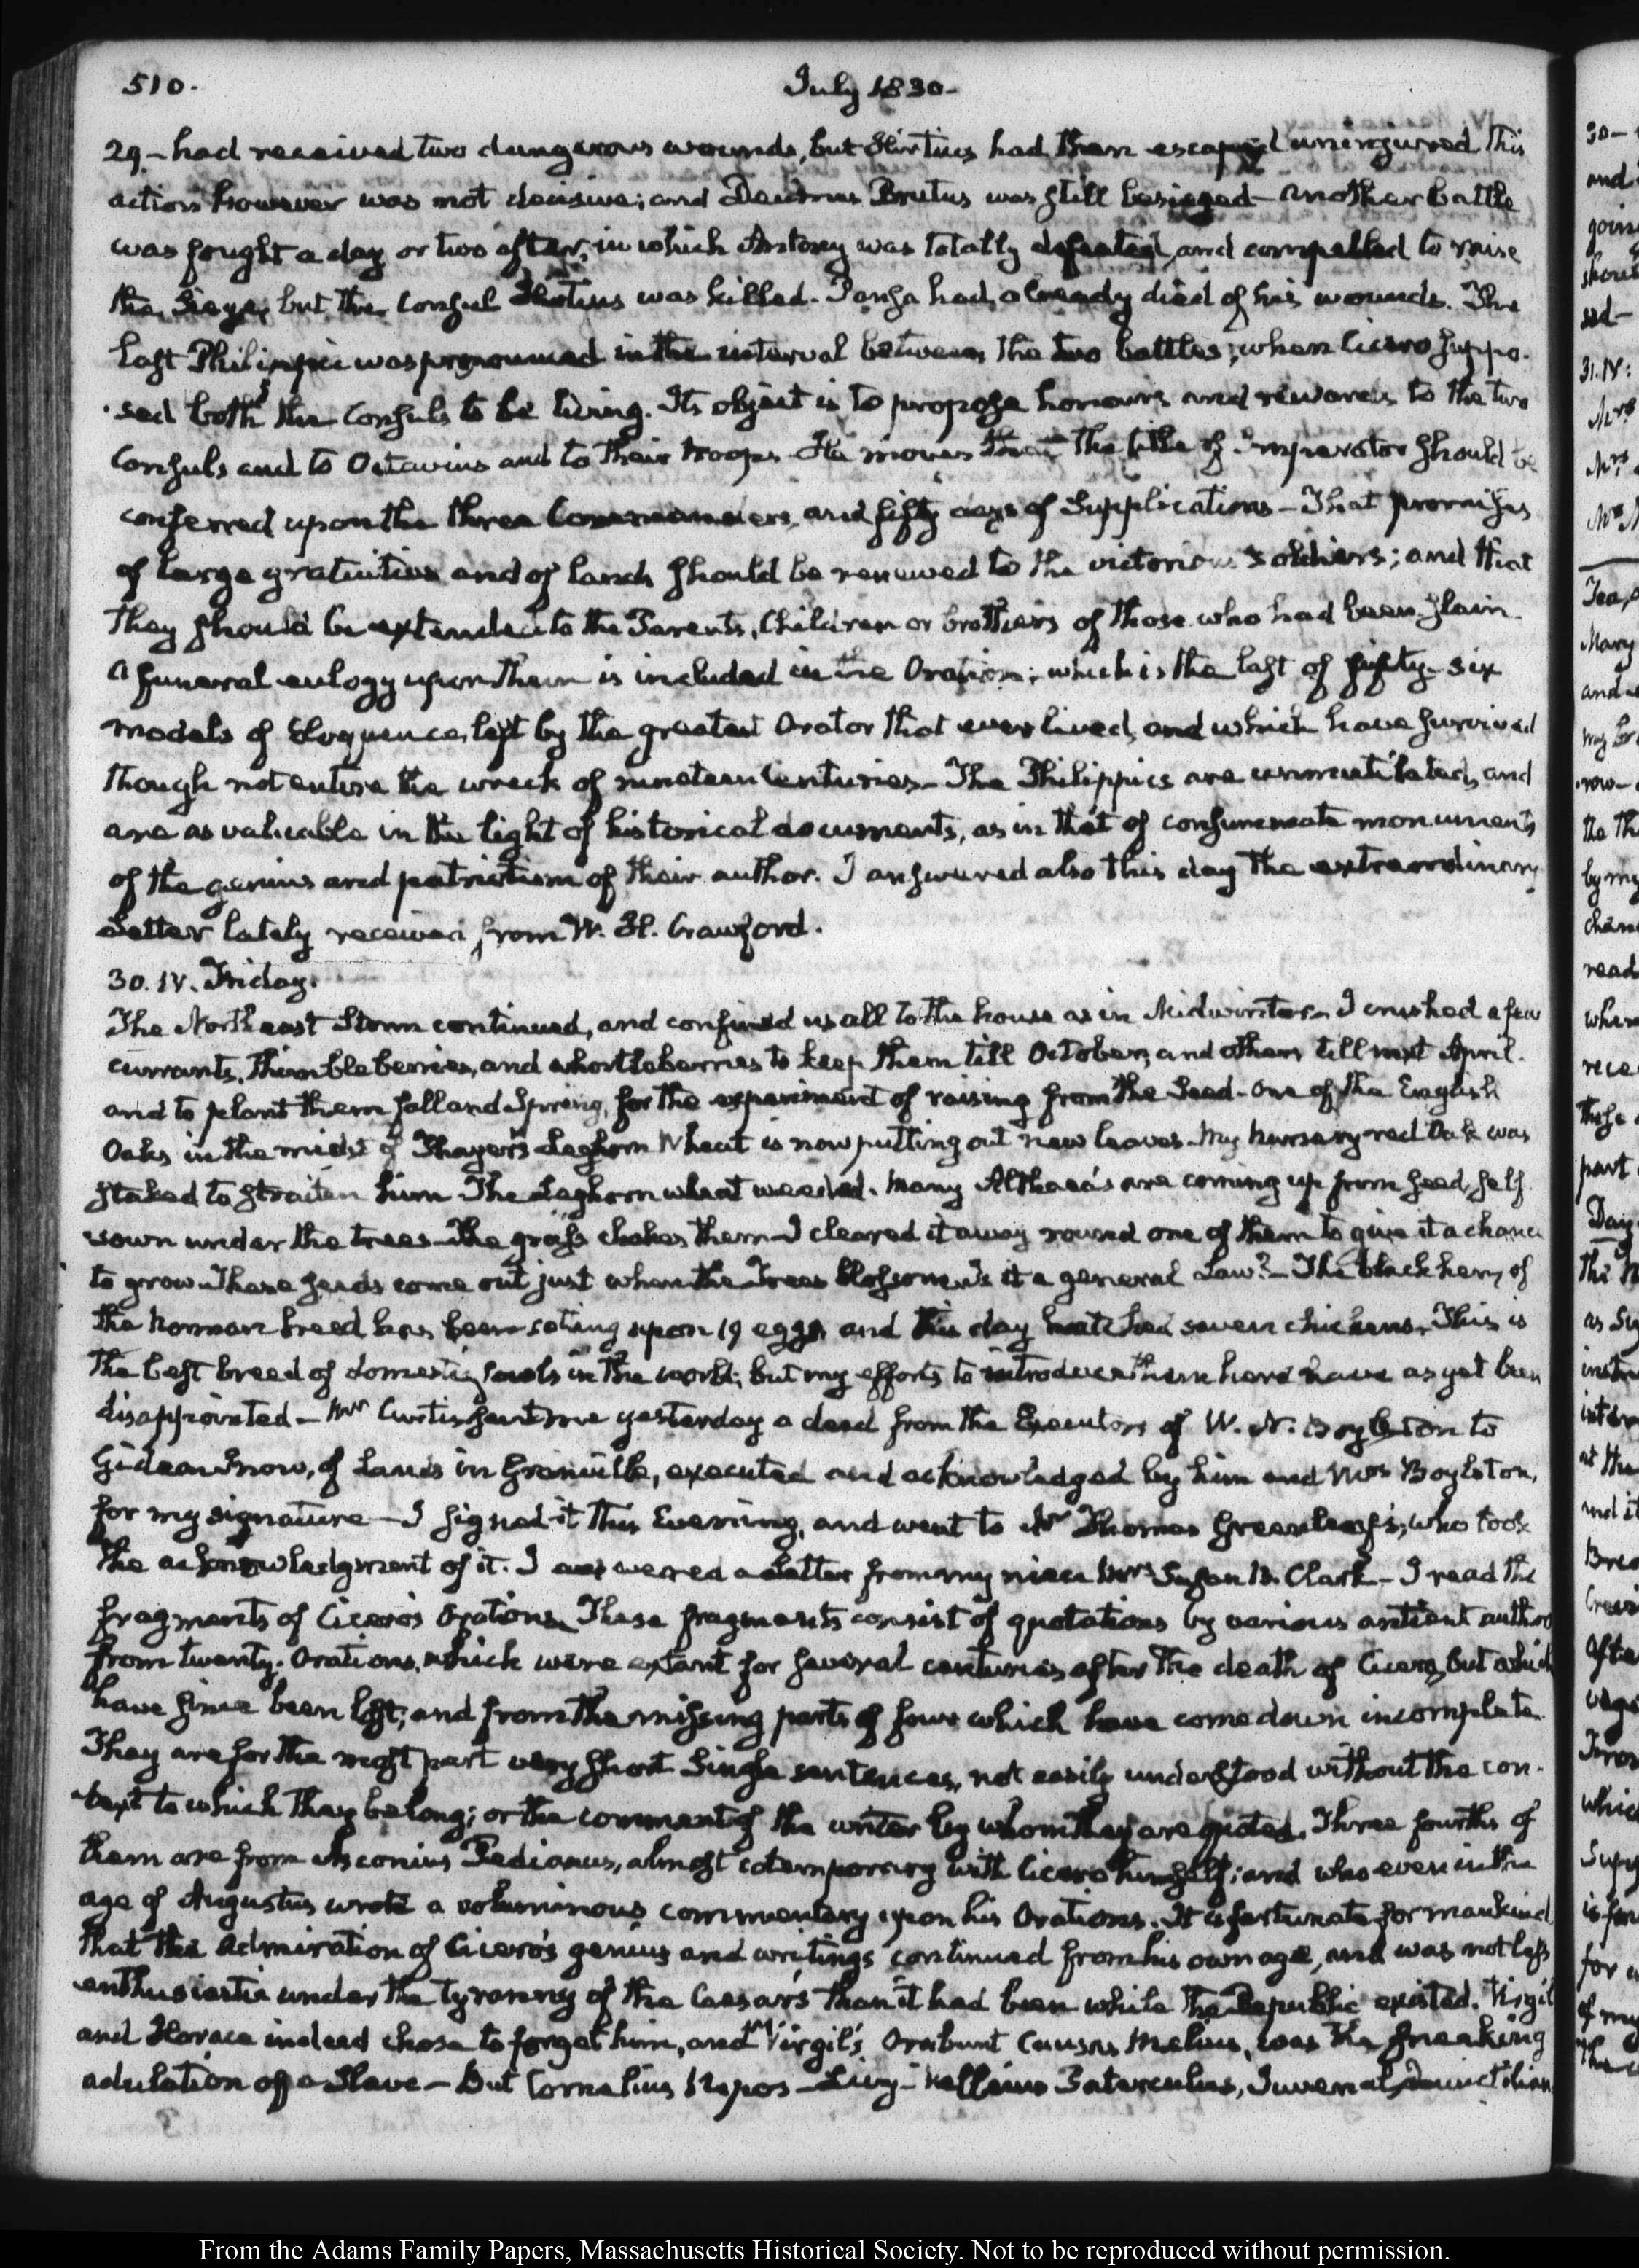 510.
July 1830-
29- had received two dangerous wounds, but Hirtius had then escaped uninjured This
action however was not decisive; and Decimus Brutus was still besieged- another battle
was fought a day or two after, in which Antony was totally defeated, and compelled to raise
the Siege, but the Consul Hirtius was killed. Pansa had already died of his wounds. The
last Philippic was pronounced in the interval between the two battles; when Cicero suppo-
sed both the Consuls to be living. Its object is to propose honours and rewards to the two
Consuls and to Octavius and to their troops- He moves that the title of Imperator should be
conferred upon the three Commanders, and fifty days of Supplications- That promises
of large gratuities and of lands should be renewed to the victorious soldiers; and that
they should be extended to the Parents, Children or brothers of those who had been slain.
A funeral eulogy upon them is included in the Oration; which is the last of fifty-six
models of Eloquence, left by the greatest Orator that ever lived, and which have survived
though not entire the wreck of nineteen Centuries- The Philippics are unmutilated, and
are as valuable in the light of historical documents, as in that of consummate monuments
of the genius and patriotism of their author. I answered also this day the extraordinary
Letter lately received from W. H. Crawford.
30. IV. Friday.
The North east Storm continued, and confined us all to the house as in Midwinter- I crushed a few
currants, Thimbleberries, and whortleberries to keep them till October, and others till next April.
and to plant them fall and Spring, for the experiment of raising from the Seed- One of the English
Oaks in the midst of Thayer's Leghorn Wheat is now putting out new leaves. My nursery red Oak was
staked to straiten him The Leghorn wheat weeded. Many Althaea's are coming up from seed, self
sown under the trees- The grass chokes them- I cleared it away round one of them to give it a chance
to grow- These seeds come out just when the Trees blossom- Is it a general Law?- The black hen, of
the Norman breed has been setting upon 19 eggs, and this day hatched seven chickens. This is
the best breed of domestic fowls in the world; but my efforts to introduce them here have as yet been
disappointed- Mr Curtis sent me yesterday a deed from the Executors of W. N. Boylston to
Gideon Snow, of Lands in Granville, executed and acknowledged by him and Mrs Boylston,
for my signature- I signed it this Evening, and went to Mr Thomas Greenleaf's, who took
the acknowledgment of it. I answered a Letter from my niece Mrs Susan B. Clark- I read the
fragments of Cicero's Orations. These fragments consist of quotations by various antient author
from twenty. Orations, which were extant for several centuries after the death of Cicero, but which
have since been lost; and from the missing parts of four which have come down incomplete.
They are for the most part very short Single sentences, not easily understood without the con-
text to which they belong; or the comment of the writer by whom they are quoted. Three fourths of
them are from Asconius Pedianus, almost cotemporary with Cicero himself; and who even in the
age of Augustus wrote a voluminous commentary upon his Orations. It is fortunate for mankind
that the admiration of Cicero's genius and writings continued from his own age, and was not less
enthusiastic under the tyranny of the Caesars than it had been while the Republic existed. Virgil
and Horace indeed chose to forget him, and Virgil's Orabunt Causas Melius, was the sneaking
adulation of a Slave- But Cornelius Nepos- Livy- Velleius Paterculus, Juvenal, Quinctilian
From the Adams Family Papers, Massachusetts Historical Society. Not to be reproduced without permission.